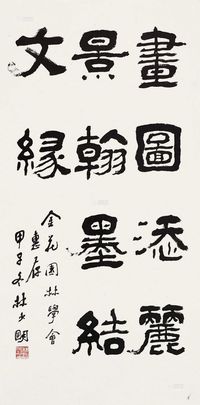 畫圖添麗
景翰墨結
文緣
金苑園林學會
惠存
甲子冬林少明